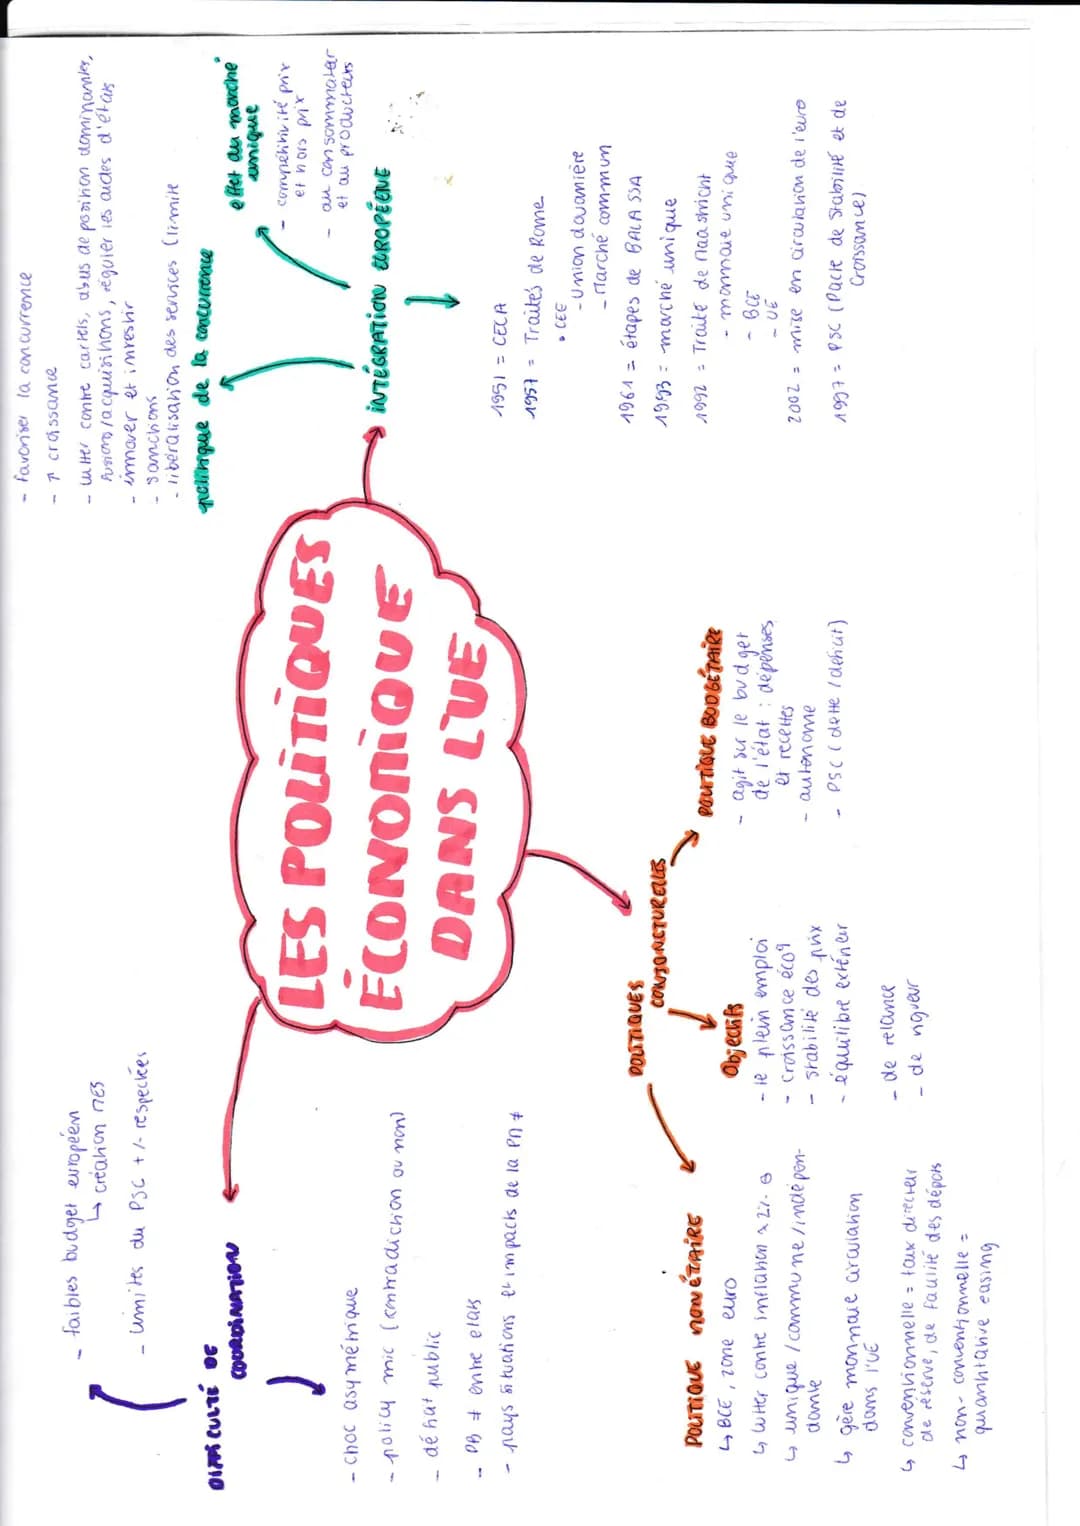 LES POLITIQUES
ÉCONOMIQUE
DANS L'UE
DIFFICULTÉ DE
COORDINATION
- faibles budget européen
↳ création MES
- Limites du PSC +/- respectées
- choc asymétrique
- policy mic (contradiction ou non)
- déhat public
- PB ≠ entre etats
- pays situations et impacts de la PM ≠
INTÉGRATION EUROPÉENE
politique de la concurrence
- favoriser la concurrence
- ↑ croissance
- lutter contre cartels, abus de position dominantes,
fusions/acquisitions, réguler les aides d'états
- innover et investir
- sanctions
- libéralisation des services (limite
effet du marché
unique
- compétitivité prix
et hors prix
- au consommateur
et au producteurs
1951 = CECA
1957 = Traités de Rome
• CEE
- Union douanière
- Marché commun
1961 = étapes de BALASSA
1993 = marché unique
1992 = Traité de Maastricht
- monnaie unique
- BCE
- UE
2002 = mise en circulation de l'euro
1997 = PSC (Pacte de Stabilité et de
Croissance)
POLITIQUES
CONJONCTURELLES
POLITIQUE MONÉTAIRE
↳ BCE, zone euro
↳ Lutter contre inflation ≈ 2%
↳ unique / commune / indépen-
dante
↳ gère monnaie circulation
dans l'UE
↳ conventionnelle = taux directeur
de réserve, de faulité des dépôts
↳ non-conventionnelle =
quantitative easing
Objectifs
- le plein emploi
- croissance éco
- stabilité des prix
- équilibre extérieur
- de relance
- de rigueur
POLITIQUE BUDGÉTAIRE
- agit sur le budget
de l'état : dépenses
et recettes
- autonome
- PSC (dette / déficit)